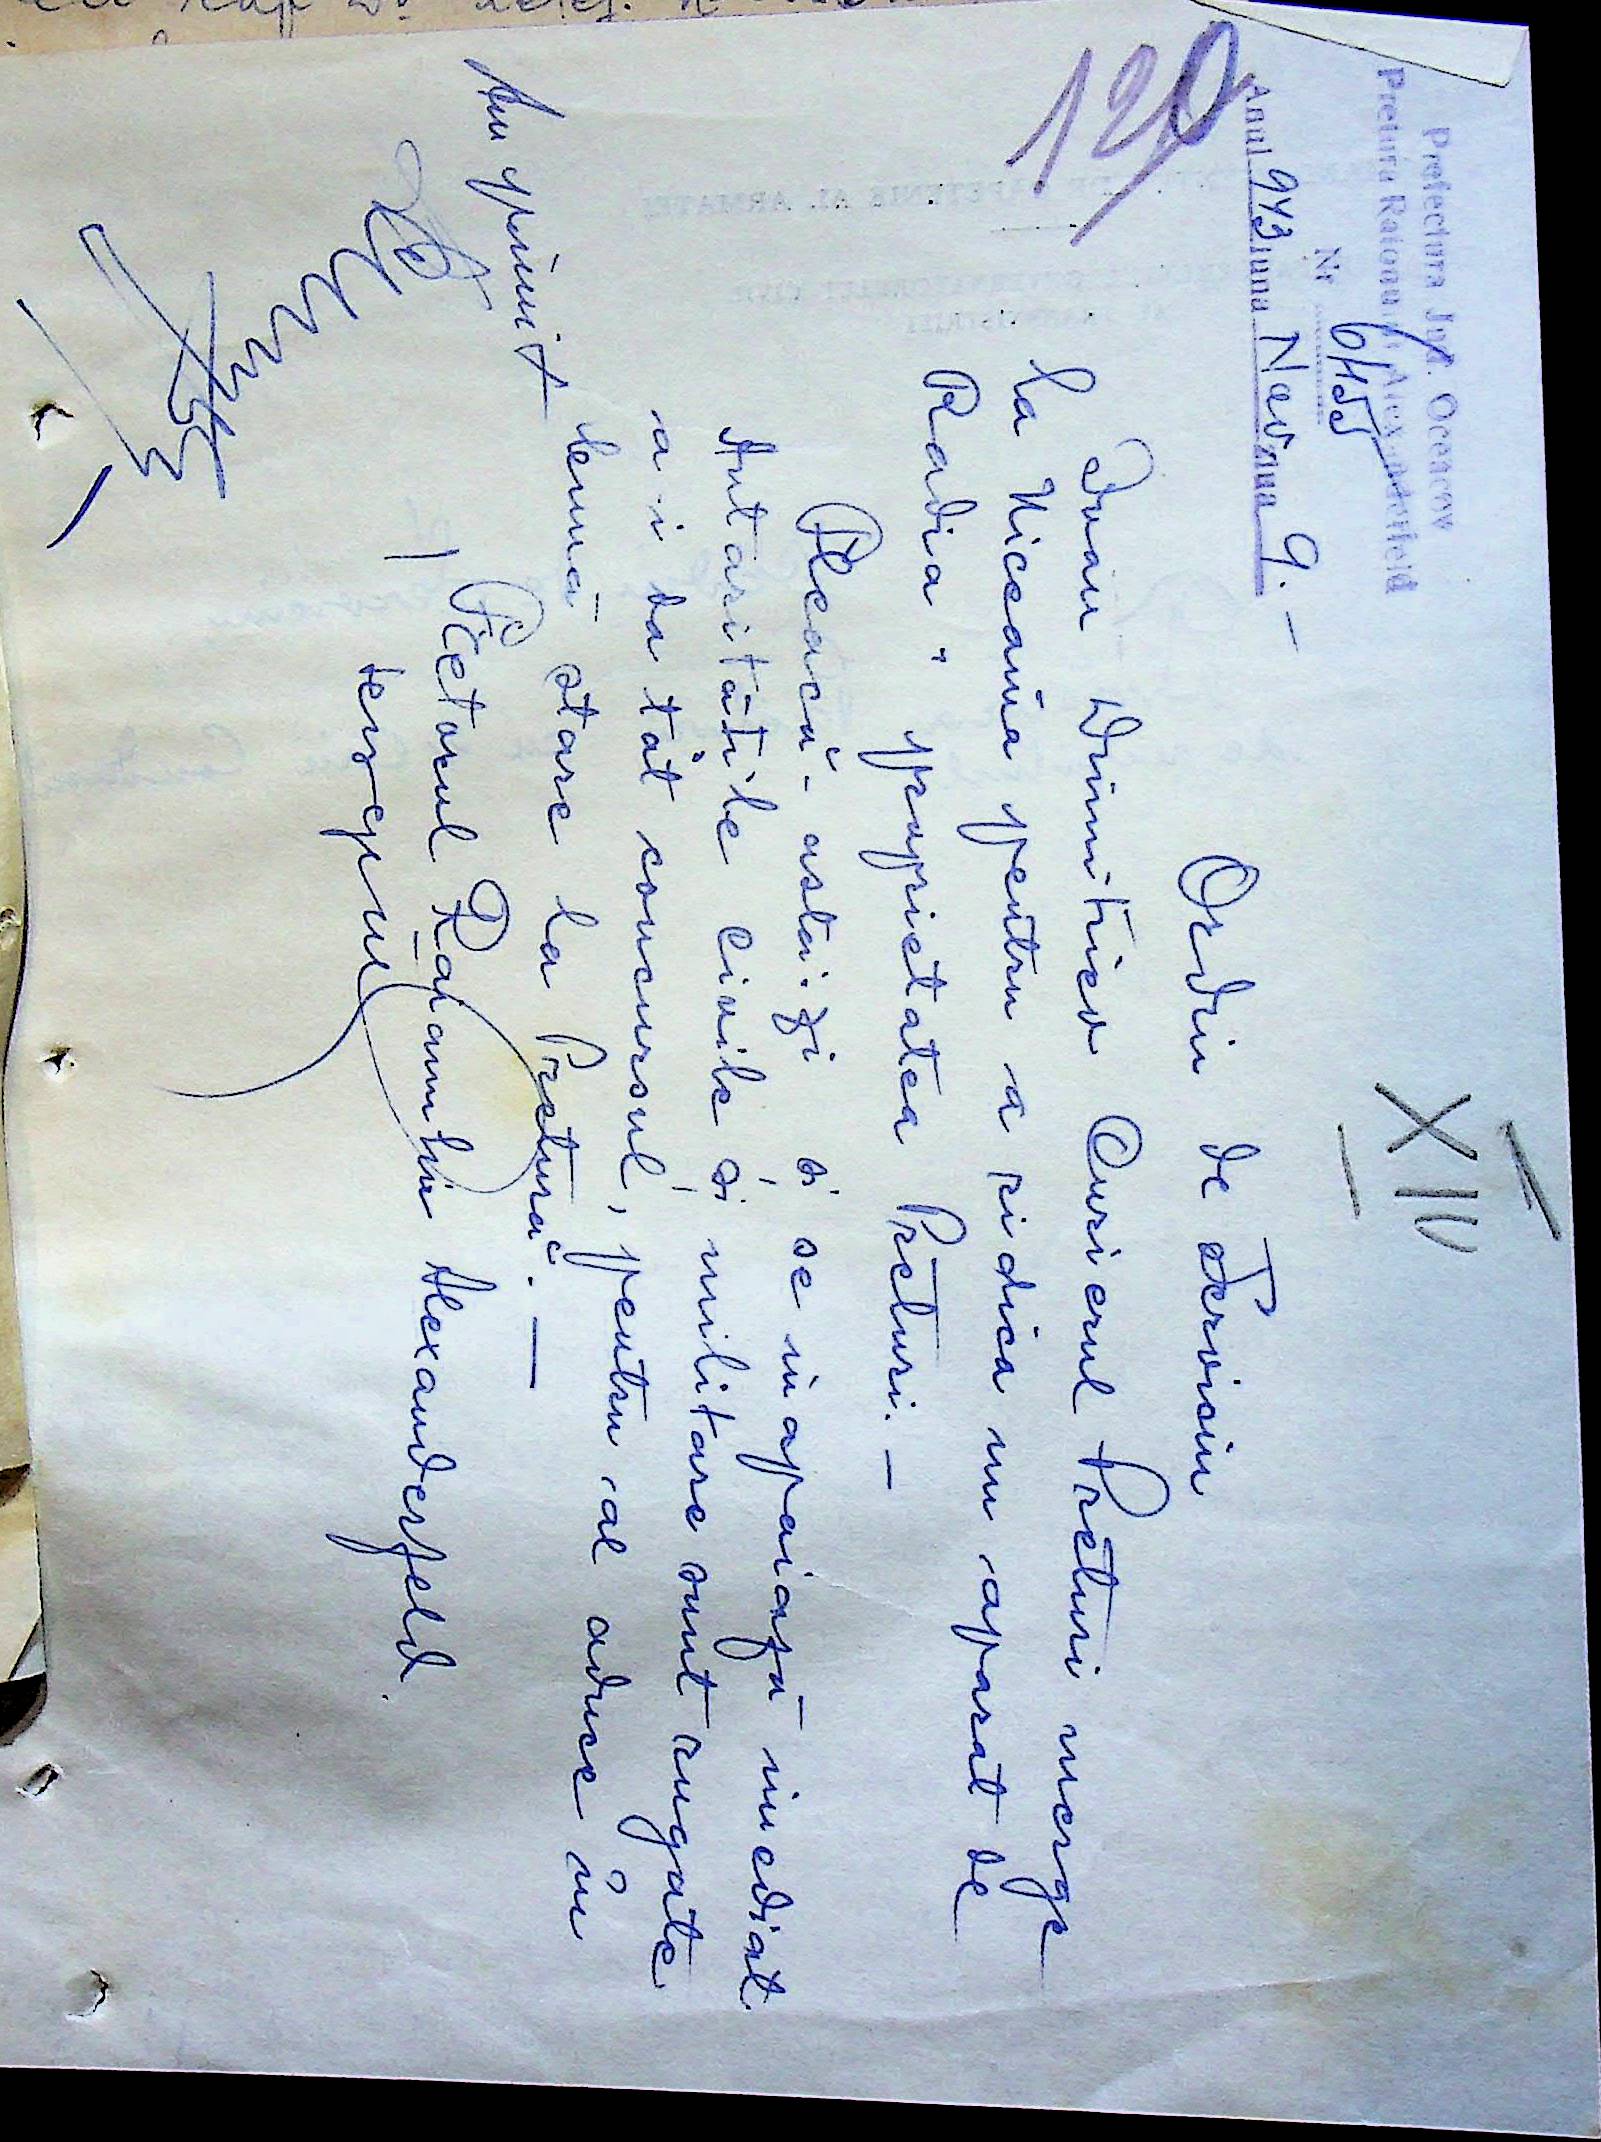 Prefectura Jud. Oceacov
Pretura Raionului Alexanderfeld
Nr 6455
Anul 943 luna Nov ziua 9. —
XII
120
Ordin de Serviciu
Ivan Dimitriev Curierul Preturi merge
la Nicoaina pentru a ridica un aparat de
Radio, proprietatea Preturi. —
Pleacă astăzi și se inapoiază imediat
Autoritățile civile și militare sunt rugate
a i da tăt concursul, pentru al aduce în
bună stare la Pretură. —
Pretorul Raionului Alexanderfeld.
Am primit